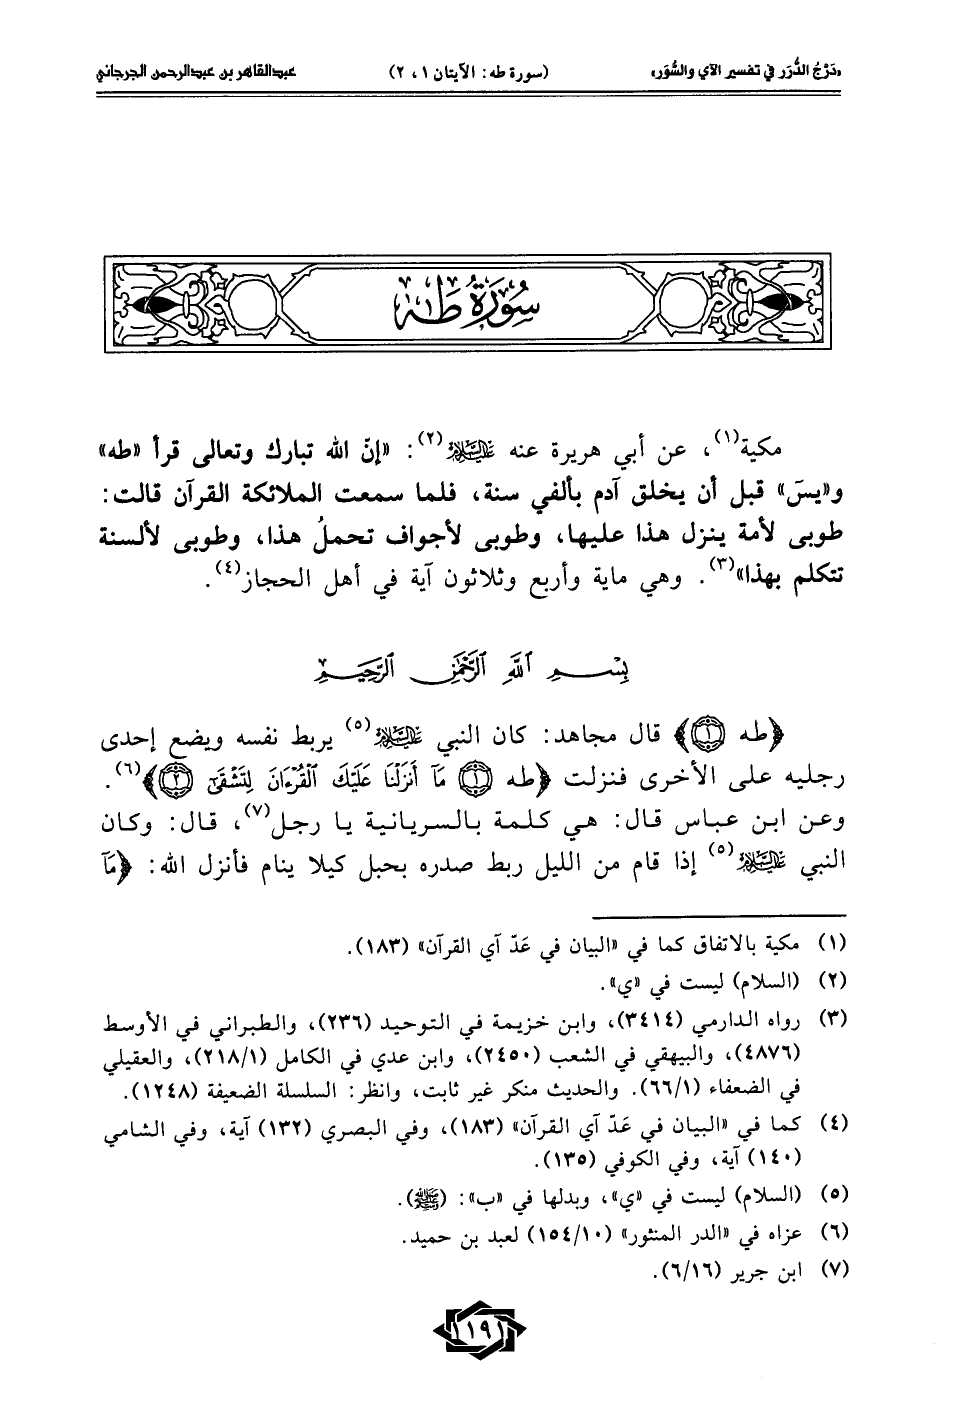 «دَرْجُ الدُّرَر في تفسير الآي والسُّوَر» (سورة طه: الآيتان ١، ٢) عبدالقاهر بن عبدالرحمن الجرجاني
سُورَةُ طه
مكية(١)، عن أبي هريرة عنه عليه السلام(٢): «إنّ الله تبارك وتعالى قرأ «طه»
و«يسَ» قبل أن يخلق آدم بألفي سنة، فلما سمعت الملائكة القرآن قالت:
طوبى لأمة ينزل هذا عليها، وطوبى لأجواف تحملُ هذا، وطوبى لألسنة
تتكلم بهذا»(٣). وهي ماية وأربع وثلاثون آية في أهل الحجاز(٤).
بِسْمِ اللَّهِ الرَّحْمَٰنِ الرَّحِيمِ
﴿طه ١﴾ قال مجاهد: كان النبي عليه السلام(٥) يربط نفسه ويضع إحدى
رجليه على الأخرى فنزلت ﴿طه ١ مَآ أَنزَلْنَا عَلَيْكَ ٱلْقُرْءَانَ لِتَشْقَىٰٓ ٢﴾(٦).
وعن ابن عباس قال: هي كلمة بالسريانية يا رجل(٧)، قال: وكان
النبي عليه السلام(٥) إذا قام من الليل ربط صدره بحبل كيلا ينام فأنزل الله: ﴿مَآ
(١) مكية بالاتفاق كما في «البيان في عَدّ آي القرآن» (١٨٣).
(٢) (السلام) ليست في «ي».
(٣) رواه الدارمي (٣٤١٤)، وابن خزيمة في التوحيد (٢٣٦)، والطبراني في الأوسط
(٤٨٧٦)، والبيهقي في الشعب (٢٤٥٠)، وابن عدي في الكامل (٢١٨/١)، والعقيلي
في الضعفاء (٦٦/١). والحديث منكر غير ثابت، وانظر: السلسلة الضعيفة (١٢٤٨).
(٤) كما في «البيان في عَدّ آي القرآن» (١٨٣)، وفي البصري (١٣٢) آية، وفي الشامي
(١٤٠) آية، وفي الكوفي (١٣٥).
(٥) (السلام) ليست في «ي»، وبدلها في «ب»: (ﷺ).
(٦) عزاه في «الدر المنثور» (١٥٤/١٠) لعبد بن حميد.
(٧) ابن جرير (٦/١٦).
١١٩١